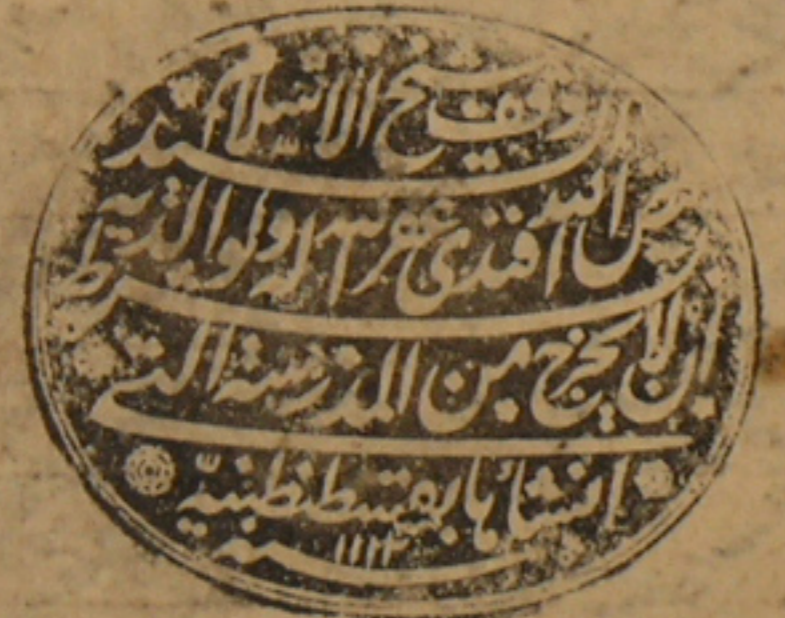 وقف شيخ الاسلام السيد
فيض الله افندى غفر الله له ولوالديه بشرط
ان لا يخرج من المدرسة التى
انشاها بقسطنطنية
سنه ١١١٣